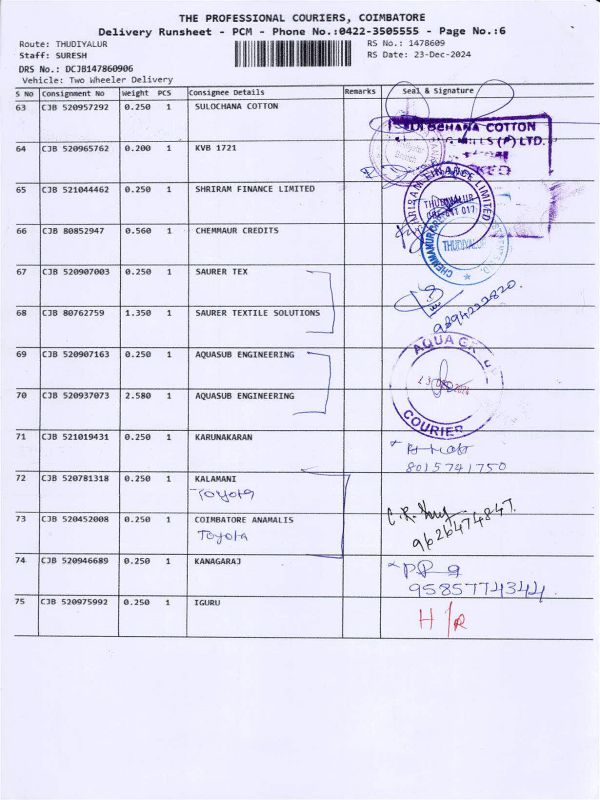 THE PROFESSIONAL COURIERS, COIMBATORE
Delivery Runsheet - PCM - Phone No.:0422-3505555 - Page No.:6
Route: THUDIYALUR RS No.: 1478609
Staff: SURESH RS Date: 23-Dec-2024
DRS No.: DCJB147860906
Vehicle: Two Wheeler Delivery
S No Consignment No Weight PCS Consignee Details Remarks Seal & Signature
63 CJB 520957292 0.250 1 SULOCHANA COTTON
SULOCHANA COTTON
MILLS (P) LTD.
64 CJB 520965762 0.200 1 KVB 1721
65 CJB 521044462 0.250 1 SHRIRAM FINANCE LIMITED
SHRIRAM FINANCE LIMITED
THUDIYALUR
66 CJB 80852947 0.560 1 CHEMMAUR CREDITS
THUDIYALUR
67 CJB 520907003 0.250 1 SAURER TEX
68 CJB 80762759 1.350 1 SAURER TEXTILE SOLUTIONS
69 CJB 520907163 0.250 1 AQUASUB ENGINEERING
AQUA GROUP
COURIER
70 CJB 520937073 2.580 1 AQUASUB ENGINEERING
71 CJB 521019431 0.250 1 KARUNAKARAN
8015741750
72 CJB 520781318 0.250 1 KALAMANI
Toyota
73 CJB 520452008 0.250 1 COIMBATORE ANAMALIS
Toyota
9626474847
74 CJB 520946689 0.250 1 KANAGARAJ
9585774344
75 CJB 520975992 0.250 1 IGURU
H/R